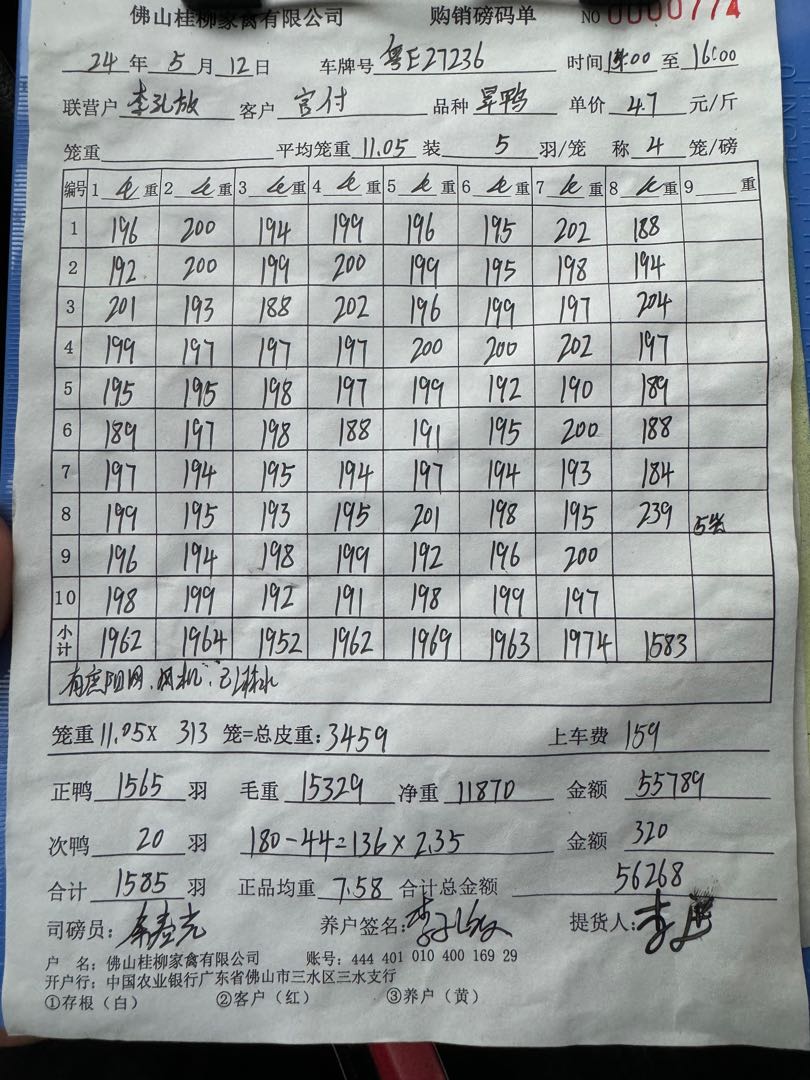 佛山桂柳家禽有限公司 购销磅码单 NO 0000774
24年5月12日 车牌号 粤E27236 时间 至 16:00
联营户 客户 宫付 品种 旱鸭 单价 4.7 元/斤
笼重 平均笼重 11.05 装 5 羽/笼 称 4 笼/磅
编号 1 毛重 2 毛重 3 毛重 4 毛重 5 毛重 6 毛重 7 毛重 8 毛重 9 重
1 196 200 194 199 196 195 202 188
2 192 200 199 200 199 195 198 194
3 201 193 188 202 196 199 197 204
4 199 197 197 197 200 200 202 197
5 195 195 198 197 199 192 190 189
6 189 197 198 188 191 195 200 188
7 197 194 195 194 197 194 193 184
8 199 195 193 195 201 198 195 239 5笼
9 196 194 198 199 192 196 200
10 198 199 192 191 198 199 197
小计 1962 1964 1952 1962 1969 1963 1974 1583
笼重 11.05 X 313 笼=总皮重: 3459 上车费 159
正鸭 1565 羽 毛重 15329 净重 11870 金额 55789
次鸭 20 羽 180-44=136×2.35 金额 320
合计 1585 羽 正品均重 7.58 合计总金额 56268
司磅员: 养户签名: 提货人:
户 名: 佛山桂柳家禽有限公司 账号: 444 401 010 400 169 29
开户行: 中国农业银行广东省佛山市三水区三水支行
①存根（白） ②客户（红） ③养户（黄）